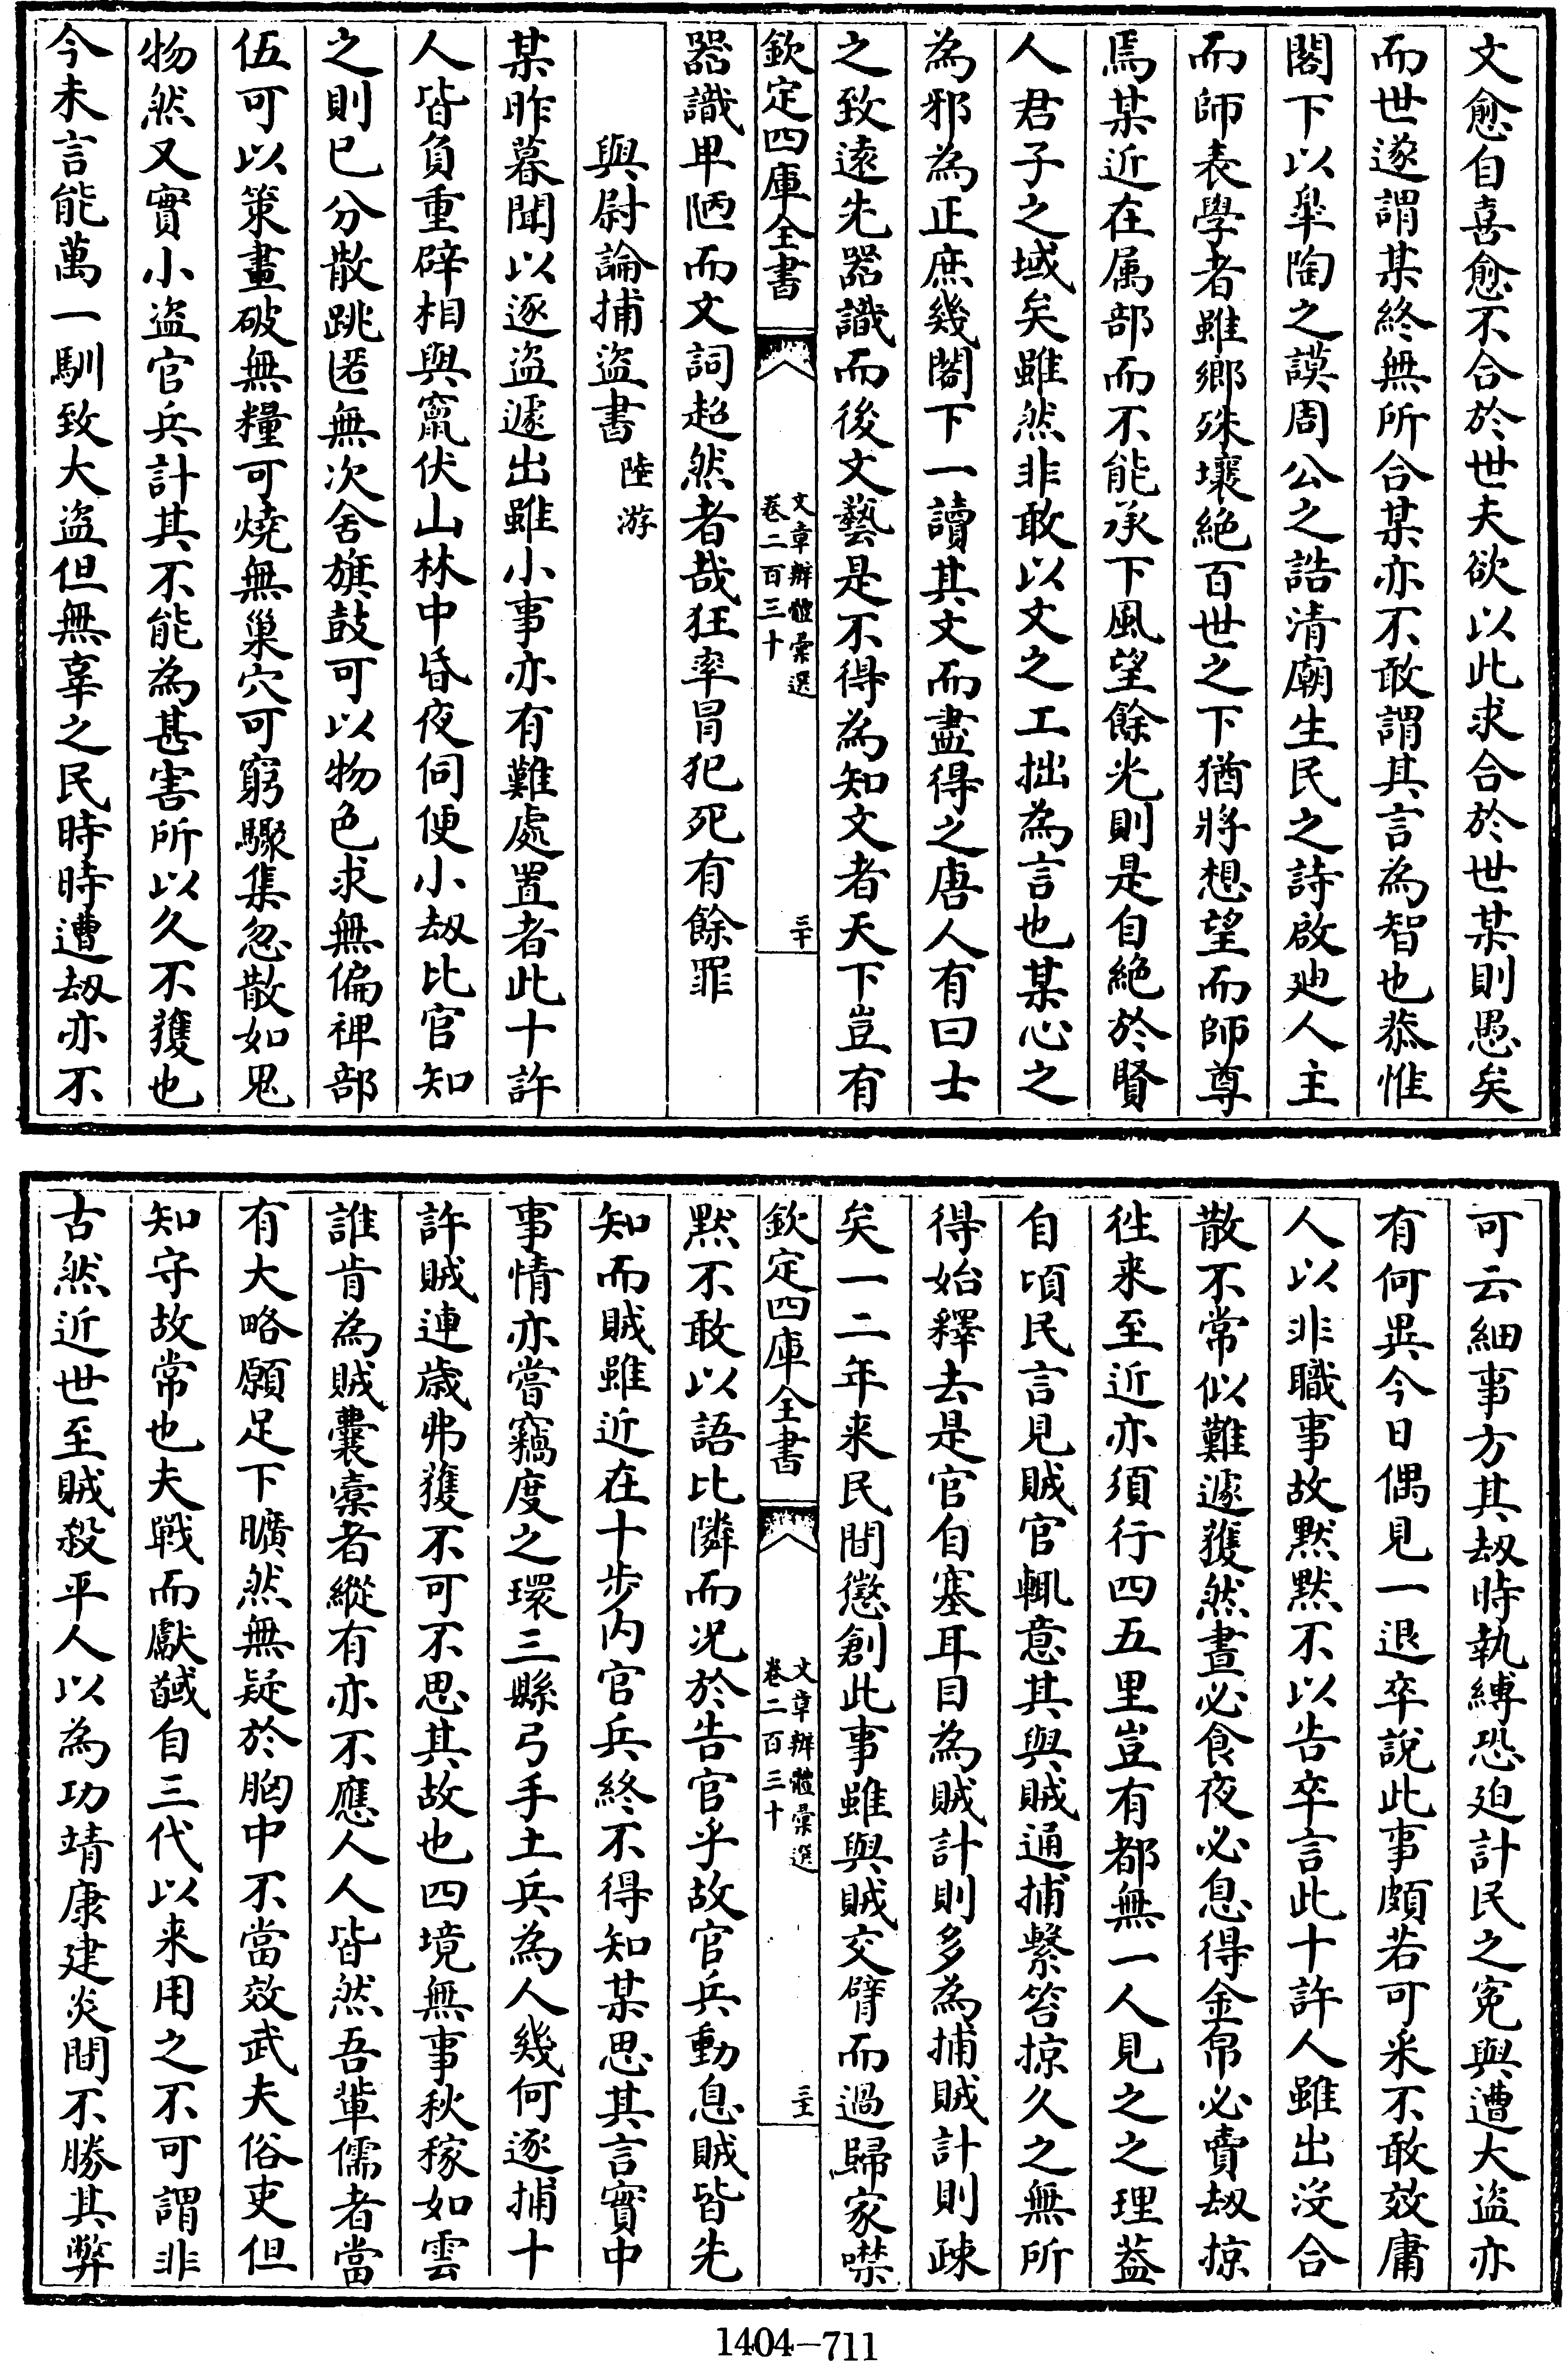 文愈自喜愈不合於世夫欲以此求合於世某則愚矣
而世遂謂某終無所合某亦不敢謂其言為智也恭惟
閣下以臯陶之謨周公之誥清廟生民之詩啟廸人主
而師表學者雖鄉殊壤絶百世之下猶將想望而師尊
焉某近在属部而不能承下風望餘光則是自絶於賢
人君子之域矣雖然非敢以文之工拙為言也某心之
為邪為正庶幾閣下一讀其文而盡得之唐人有曰士
之致遠先器識而後文藝是不得為知文者天下豈有
欽定四庫全書
文章辨體彙選
卷二百三十
三十
器識卑陋而文詞超然者哉狂率冐犯死有餘罪
與尉論捕盜書 陸游
某昨暮聞以逐盜遽出雖小事亦有難處置者此十許
人皆負重辟相與竄伏山林中昏夜伺便小刼比官知
之則已分散跳匿無次舍旗鼓可以物色求無偏裨部
伍可以策畫破無糧可燒無巢穴可窮驟集忽散如鬼
物然又實小盜官兵計其不能為甚害所以久不獲也
今未言能萬一馴致大盜但無辜之民時時遭刼亦不
可云細事方其刼時執縛恐廹計民之寃與遭大盜亦
有何異今日偶見一退卒說此事頗若可采不敢效庸
人以非職事故黙黙不以告卒言此十許人雖出沒合
散不常似難遽獲然晝必食夜必息得金帛必賣刼掠
徃来至近亦須行四五里豈有都無一人見之之理葢
自頃民言見賊官輒意其與賊通捕繫笞掠久之無所
得始釋去是官自塞耳目為賊計則多為捕賊計則疎
矣一二年来民間懲創此事雖與賊交臂而過歸家噤
欽定四庫全書
文章辨體彙選
卷二百三十
三十一
黙不敢以語比隣而况於告官乎故官兵動息賊皆先
知而賊雖近在十步内官兵終不得知某思其言實中
事情亦嘗竊度之環三縣弓手土兵為人幾何逐捕十
許賊連歳弗獲不可不思其故也四境無事秋稼如雲
誰肯為賊囊槖者縱有亦不應人人皆然吾輩儒者當
有大略願足下曠然無疑於胸中不當效武夫俗吏但
知守故常也夫戰而獻馘自三代以来用之不可謂非
古然近世至賊殺平人以為功靖康建炎間不勝其弊
1404-711